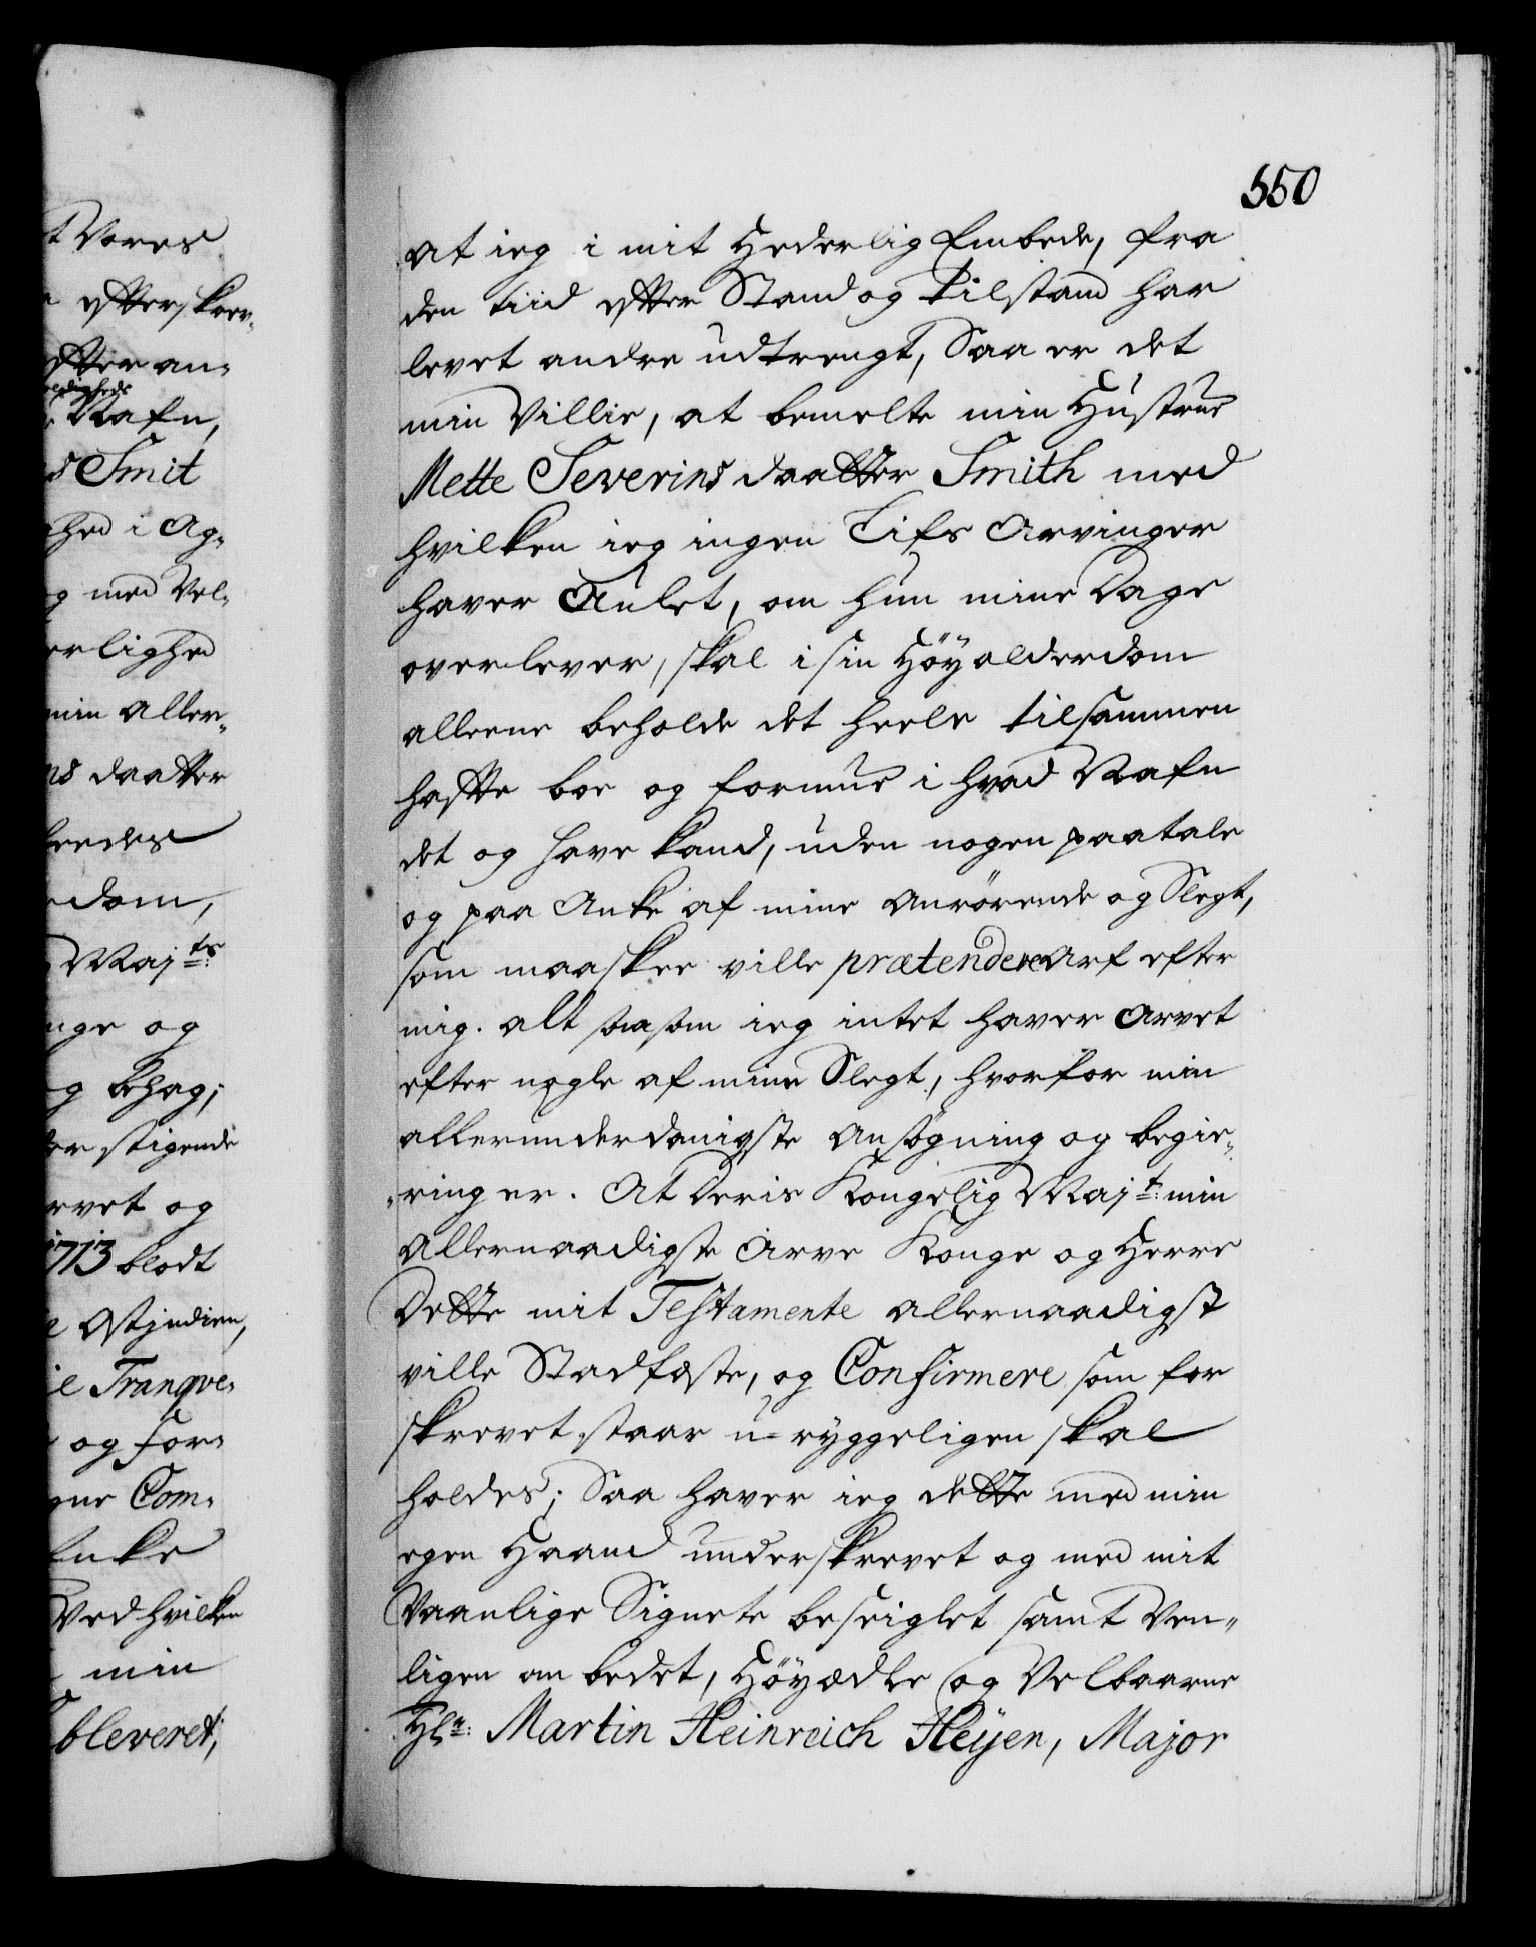 t Vores
efterskrev¬
efter an¬
eldigheds
Nafn,
s Smit
hed i Ag¬
g med Vel¬
erlighed
min aller¬
ns daatter
leedes
edom,
Majts:
nge og
g Behag;
der stigende
evet og
1713 blodt
Ostjndien,
il Tranqve¬
og For¬
gne Com¬
Enke
Ved hvilken
min
bleveret,
550
at ieg i mit Hederlig Embede, fra
den tiid efter Stand og tilstand har
levet andre udtrengt, Saa er det
min Villie, at bemelte min Hustrue
Mette Severins daatter Smith med
hvilken ieg ingen Lifs Arvinger
haver Aulet, om hun mine Dage
overlever, skal i sin Höyalderdom
alleene beholde det heele tilsammen
hafte boe og formue i hvad Nafn
det og have kand, uden nogen paatale
og paa Anke af mine Anrörende og Slegt,
som maaskee ville prætendere Arf efter
mig. alt saasom ieg intet haver Arvet
efter nogle af mine Slegt, hvorfor min
allerunderdanigste Ansögning og begie¬
¬ring er. At Deris Kongelig Majt: min
Allernaadigste Arve Konge og Herre
Dette mit Testamente allernaadigst
ville Stadfæste, og Confirmere som for
skrevet staar u-ryggeligen skal
holdes; Saa haver ieg dette med min
egen Haand underskrevet og med mit
Vaanlige Signete beseiglet samt Ven¬
ligen om bedet, Höyædle og Velbaarne
Hr: Martin Heinreich Heÿen, Major